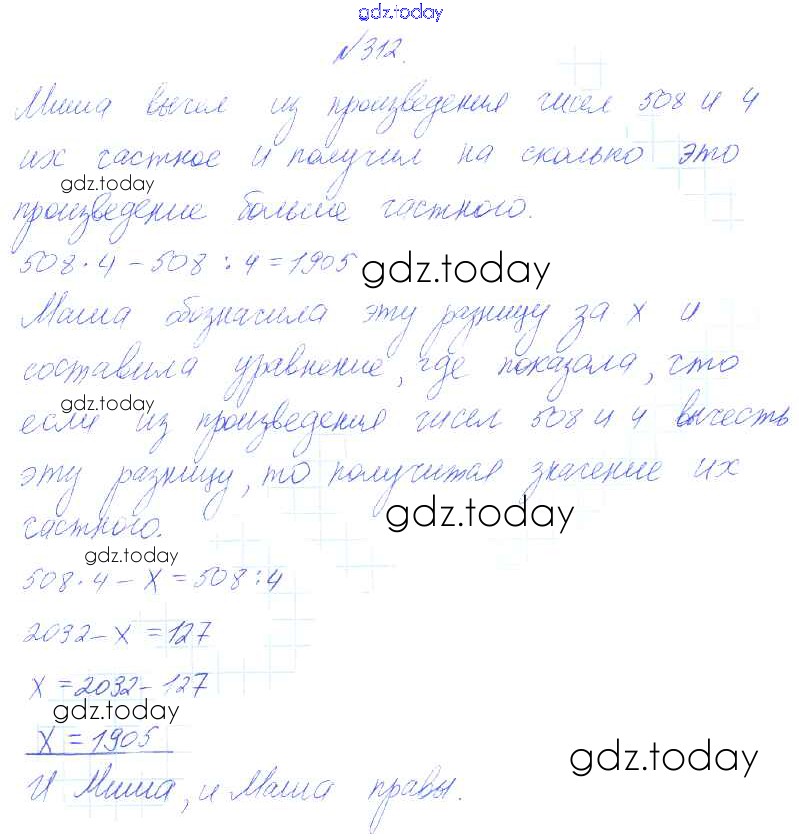 gdz.today
№312.
Миша вычел из произведения чисел 508 и 4
их частное и получил на сколько это
gdz.today
произведение больше частного.
508·4-508:4=1905 gdz.today
Маша обозначила эту разницу за x и
составила уравнение, где показала, что
gdz.today
если из произведения чисел 508 и 4 вычесть
эту разницу, то получится значение их
частного. gdz.today
gdz.today
508·4-x=508:4
2032-x=127
x=2032-127
gdz.today
x=1905
gdz.today
И Миша, и Маша правы.